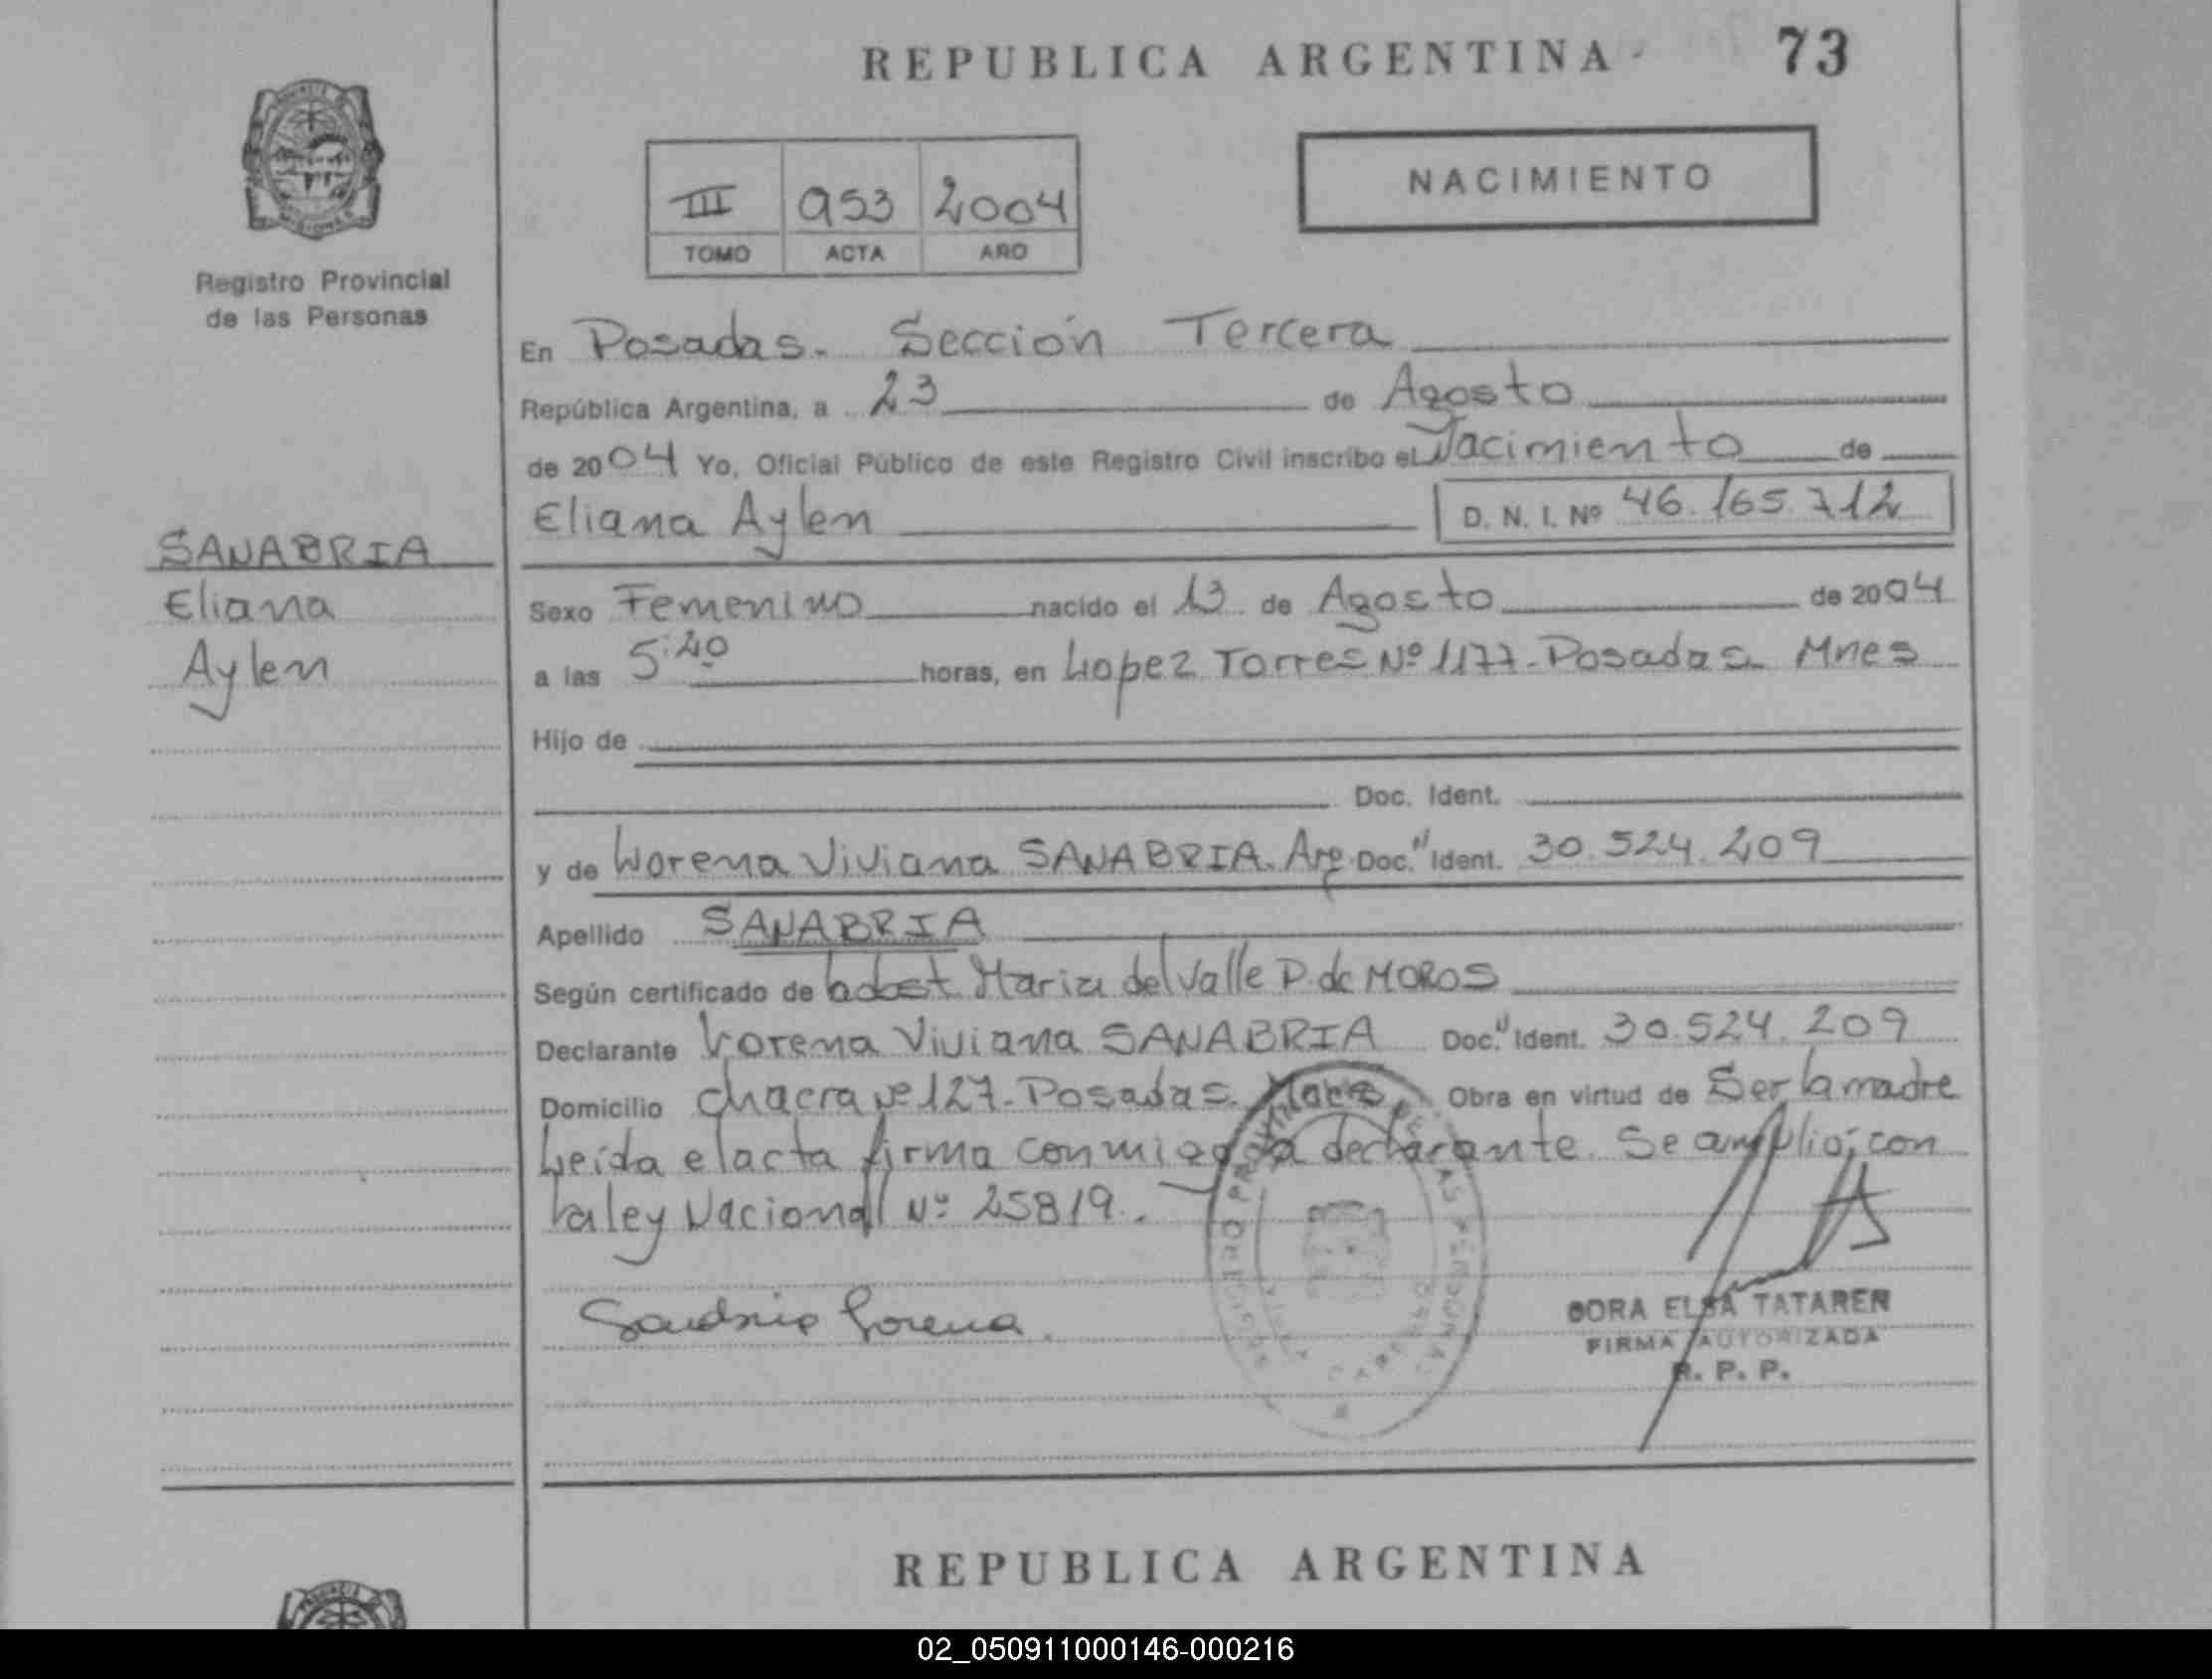 REPUBLICA ARGENTINA
73
NACIMIENTO
III 953 2004
TOMO ACTA AÑO
Registro Provincial
de las Personas
En Posadas. Sección Tercera
República Argentina, a 23 de Agosto
de 2004 Yo, Oficial Público de este Registro Civil inscribo el Nacimiento de
Eliana Aylen D. N. I. Nº 46.165.712
SANABRIA
Eliana
Aylen
Sexo Femenino nacido el 13 de Agosto de 2004
a las 5:40 horas, en Lopez Torres Nº 1177-Posadas. Mnes
Hijo de
Doc. Ident.
y de Lorena Viviana SANABRIA. Arg. Doc. Ident. 30.524.209
Apellido SANABRIA
Según certificado de la obst Maria del Valle P. de MOROS
Declarante Lorena Viviana SANABRIA Doc. Ident. 30.524.209
Domicilio Chacra Nº 127-Posadas. Mnes Obra en virtud de Ser la madre
Leída el acta firma conmigo la declarante. Se amplió; con
la ley Nacional Nº 25819.
Sanabria Lorena.
DORA ELSA TATAREN
FIRMA AUTORIZADA
R. P. P.
REPUBLICA ARGENTINA
02_050911000146-000216